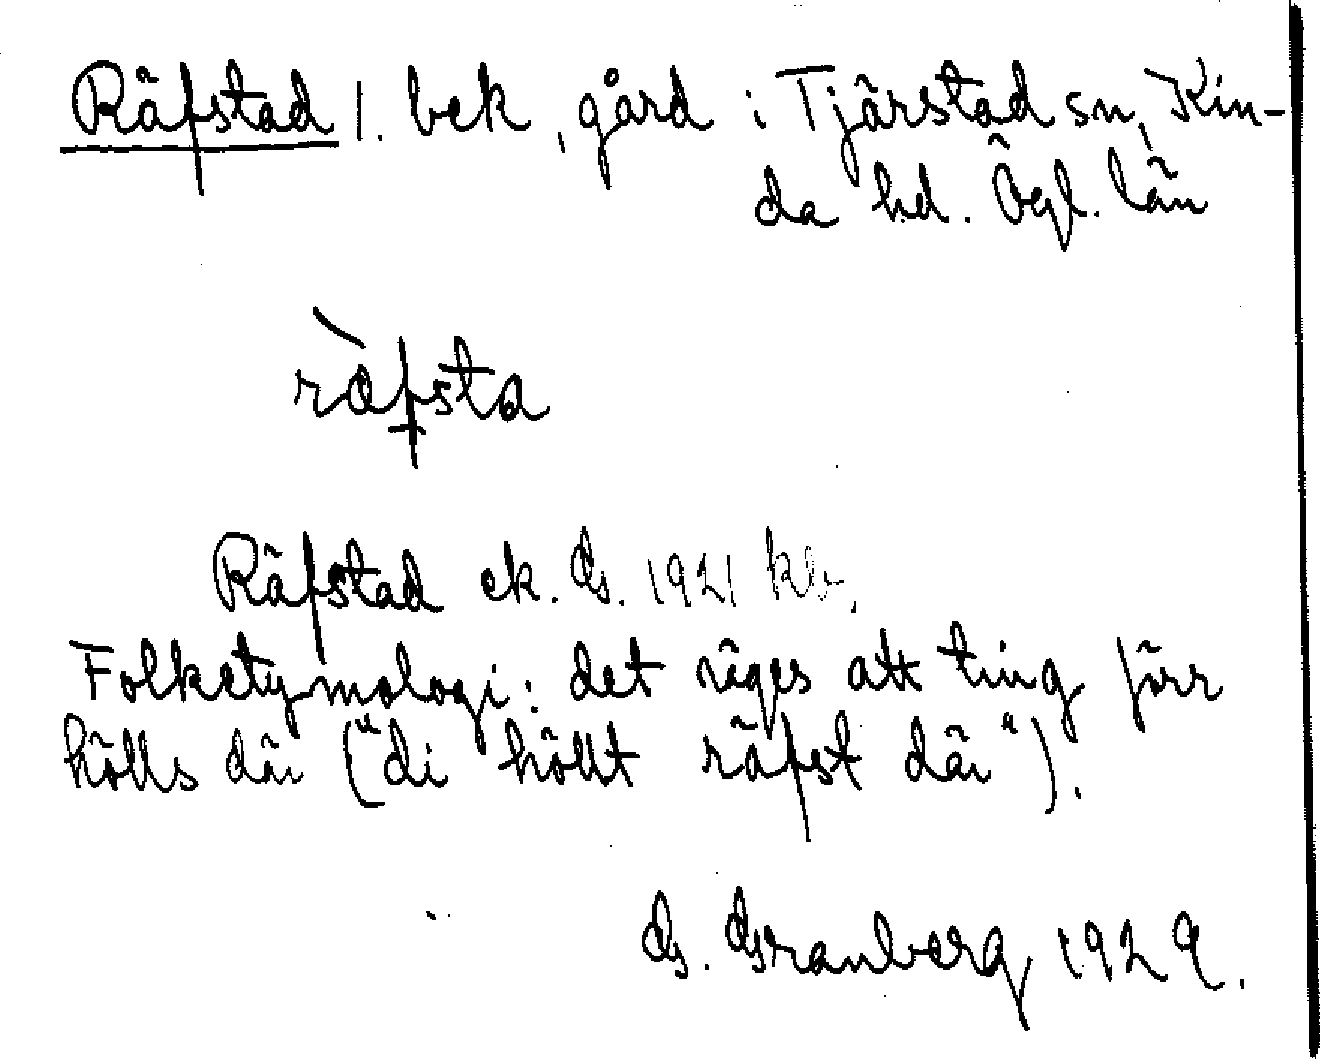 Räfstad 1. bek, gård i Tjärstad sn, Kin-
da hd. Ögl. län
ràfsta
Räfstad ek. G. 1921 kbr,
Folketymologi: det säges att ting förr
hölls där ("di höllt räfst där").
G. Granberg 1929.